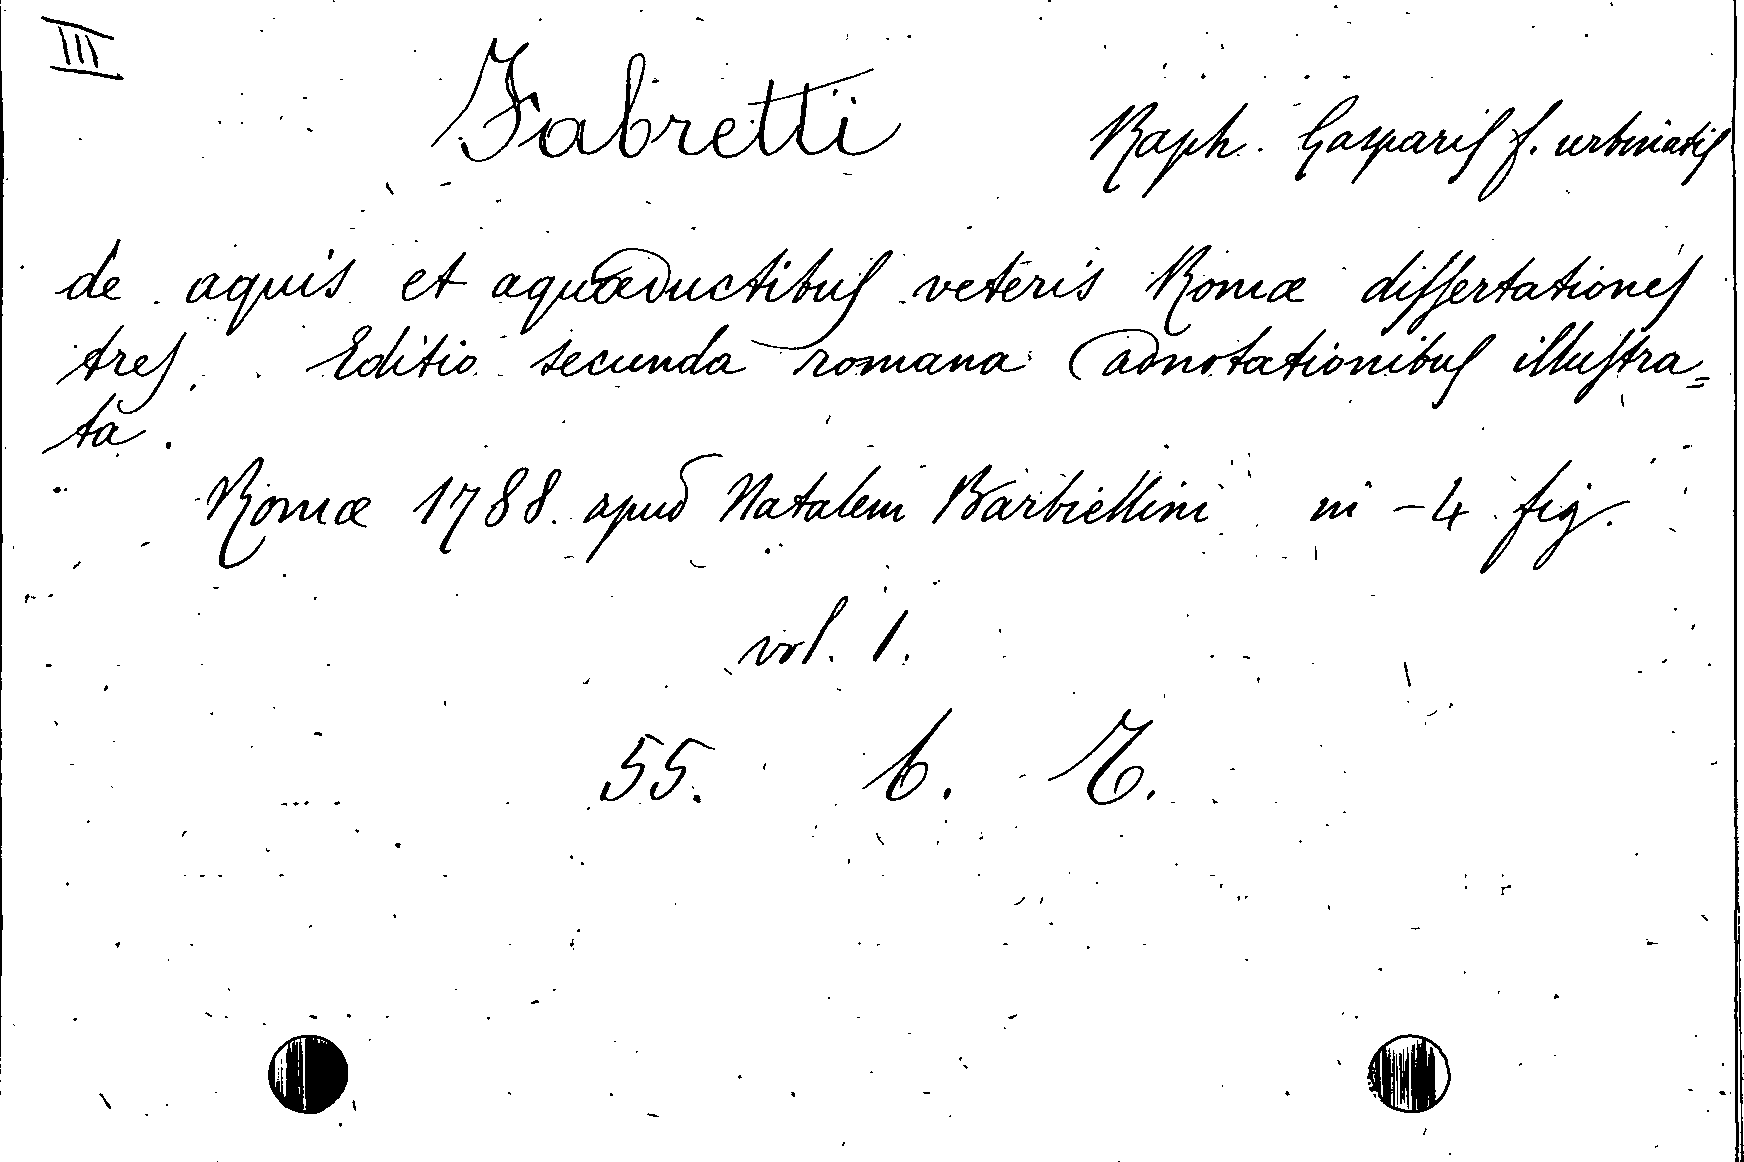 III
Fabretti Raph. Gasparis f. urbinatis
de aquis et aquæductibus veteris Romæ dissertationes
tres. Editio secunda romana adnotationibus illustra=
ta.
Romæ 1788. apud Natalem Barbiellini in-4 fig.
vol. 1.
55. b.